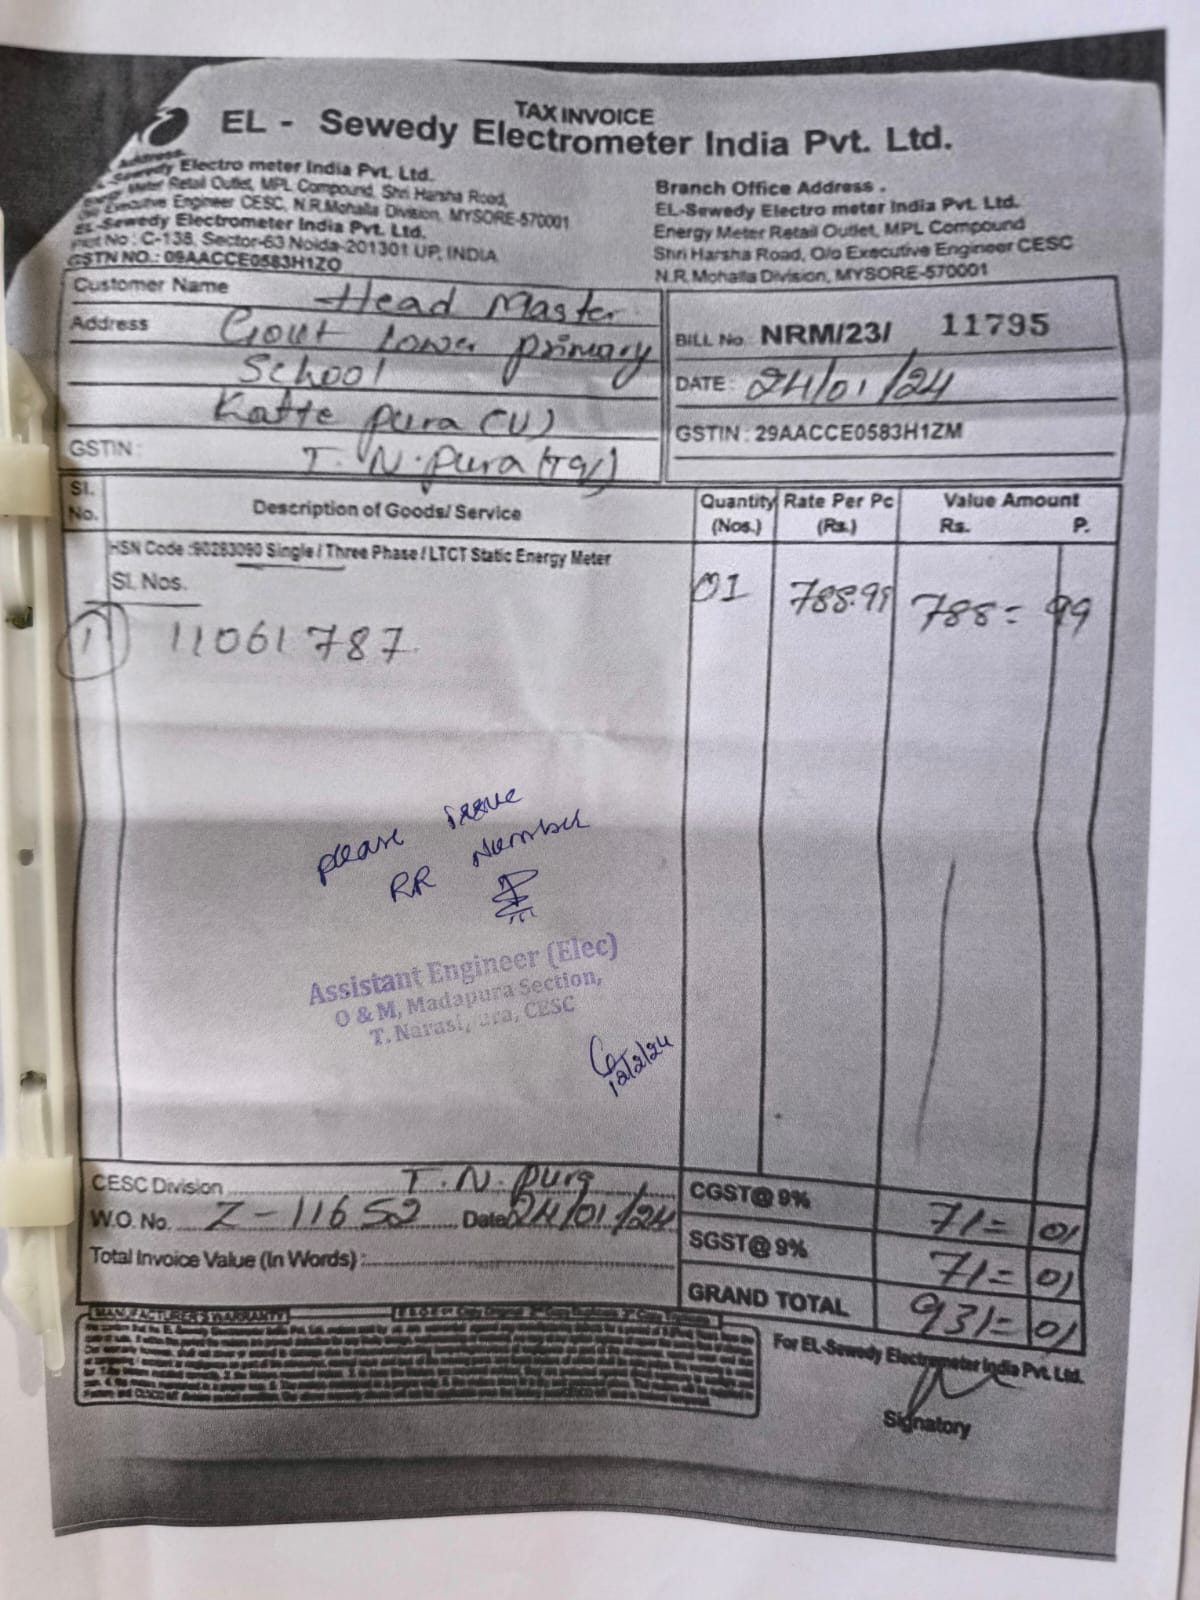 TAX INVOICE
EL - Sewedy Electrometer India Pvt. Ltd.
Address
Electro meter India Pvt. Ltd.
Meter Retail Outlet, MPL Compound, Shri Harsha Road,
Executive Engineer CESC, N.R.Mohalla Division, MYSORE-570001
EL-Sewedy Electrometer India Pvt. Ltd.
Plot No : C-138, Sector-63 Noida-201301 UP, INDIA
GSTN NO.: 09AACCE0583H1ZO
Branch Office Address .
EL-Sewedy Electro meter India Pvt. Ltd.
Energy Meter Retail Outlet, MPL Compound
Shri Harsha Road, O/o Executive Engineer CESC
N.R. Mohalla Division, MYSORE-570001
Customer Name Head Master
Address Govt lower primary
School
Katte pura (V)
GSTIN : T. N. pura (Tq)
BILL No. NRM/23/ 11795
DATE : 24/01/24
GSTIN : 29AACCE0583H1ZM
Sl. No. Description of Goods/ Service Quantity (Nos.) Rate Per Pc (Rs.) Value Amount Rs. P.
HSN Code :90283090 Single / Three Phase / LTCT Static Energy Meter
Sl. Nos. 01 788.99 788= 99
1 11061787
please issue
RR Number
Assistant Engineer (Elec)
O & M, Madapura Section,
T. Narasi ura, CESC
12/2/24
CESC Division T. N. Pura
W.O. No. Z-11652 Date 24/01/24
Total Invoice Value (In Words) :
CGST@ 9% 71= 01
SGST@ 9% 71= 01
GRAND TOTAL 931= 01
MANUFACTURER'S WARRANTY
For EL-Sewedy Electrometer India Pvt. Ltd.
Signatory